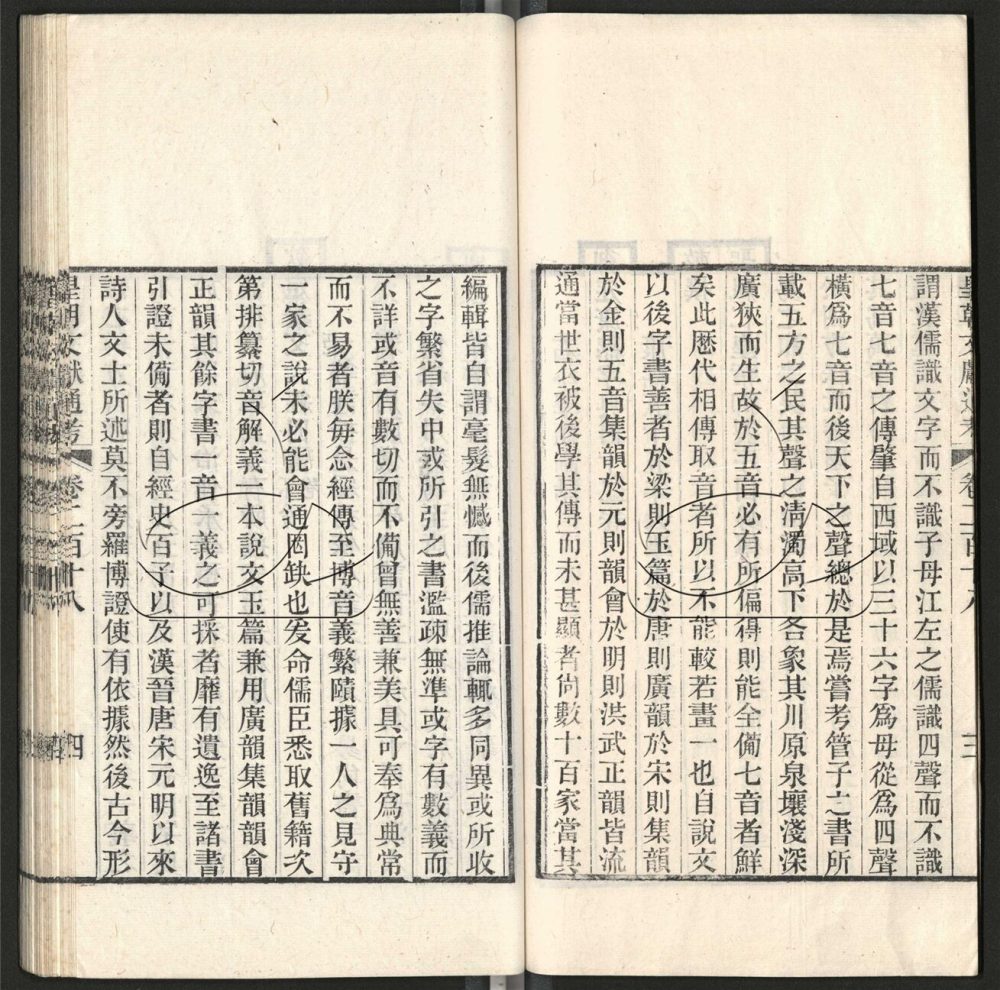 皇朝文獻通考 卷二百十八 三
謂漢儒識文字而不識子母江左之儒識四聲而不識
七音七音之傳肇自西域以三十六字爲母從爲四聲
橫爲七音而後天下之聲總於是焉嘗考管子之書所
載五方之民其聲之清濁高下各象其川原泉壤淺深
廣狹而生故於五音必有所偏得則能全僃七音者鮮
矣此歷代相傳取音者所以不能較若畫一也自說文
以後字書善者於梁則玉篇於唐則廣韻於宋則集韻
於金則五音集韻於元則韻會於明則洪武正韻皆流
通當世衣被後學其傳而未甚顯者尚數十百家當其
編輯皆自謂毫髮無憾而後儒推論輒多同異或所收
之字繁省失中或所引之書濫疎無準或字有數義而
不詳或音有數切而不僃曾無善兼美具可奉爲典常
而不易者朕每念經傳至博音義繁賾據一人之見守
一家之說未必能會通罔缺也爰命儒臣悉取舊籍次
第排纂切音解義一本說文玉篇兼用廣韻集韻韻會
正韻其餘字書一音一義之可採者靡有遺逸至諸書
引證未僃者則自經史百子以及漢晉唐宋元明以來
詩人文士所述莫不旁羅博證使有依據然後古今形
皇朝文獻通考 卷二百十八 四